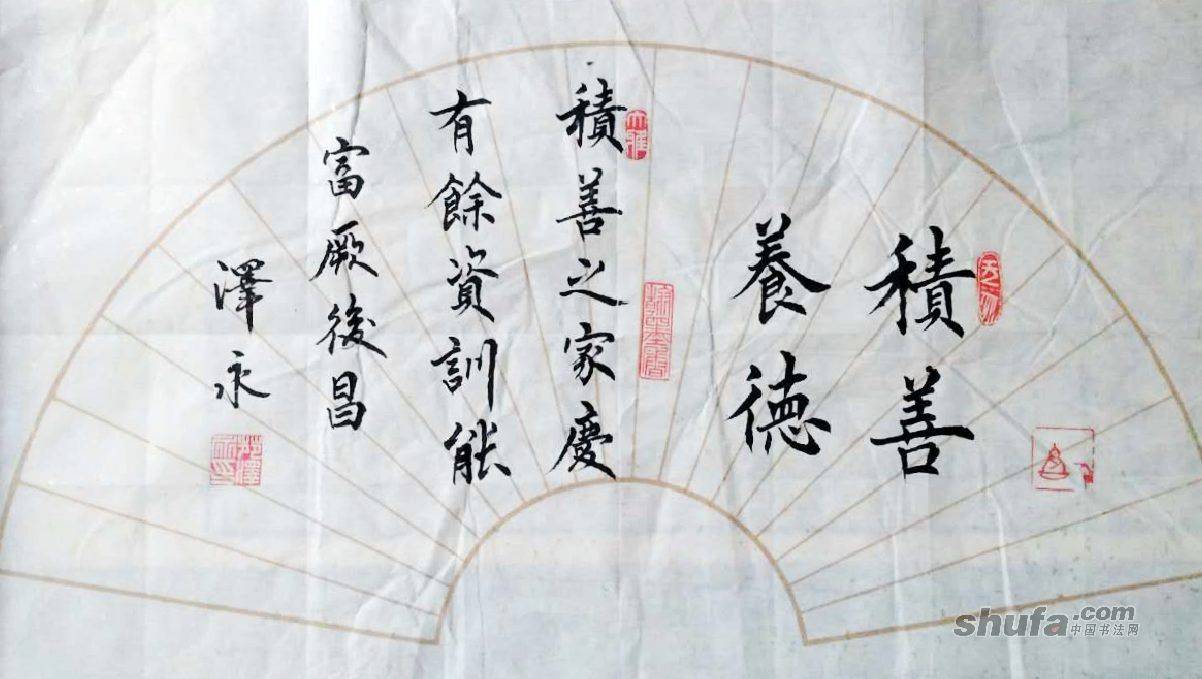 積善
養德
積善之家慶
有餘資訓能
富厥後昌
澤永
shufa.com
中国书法网